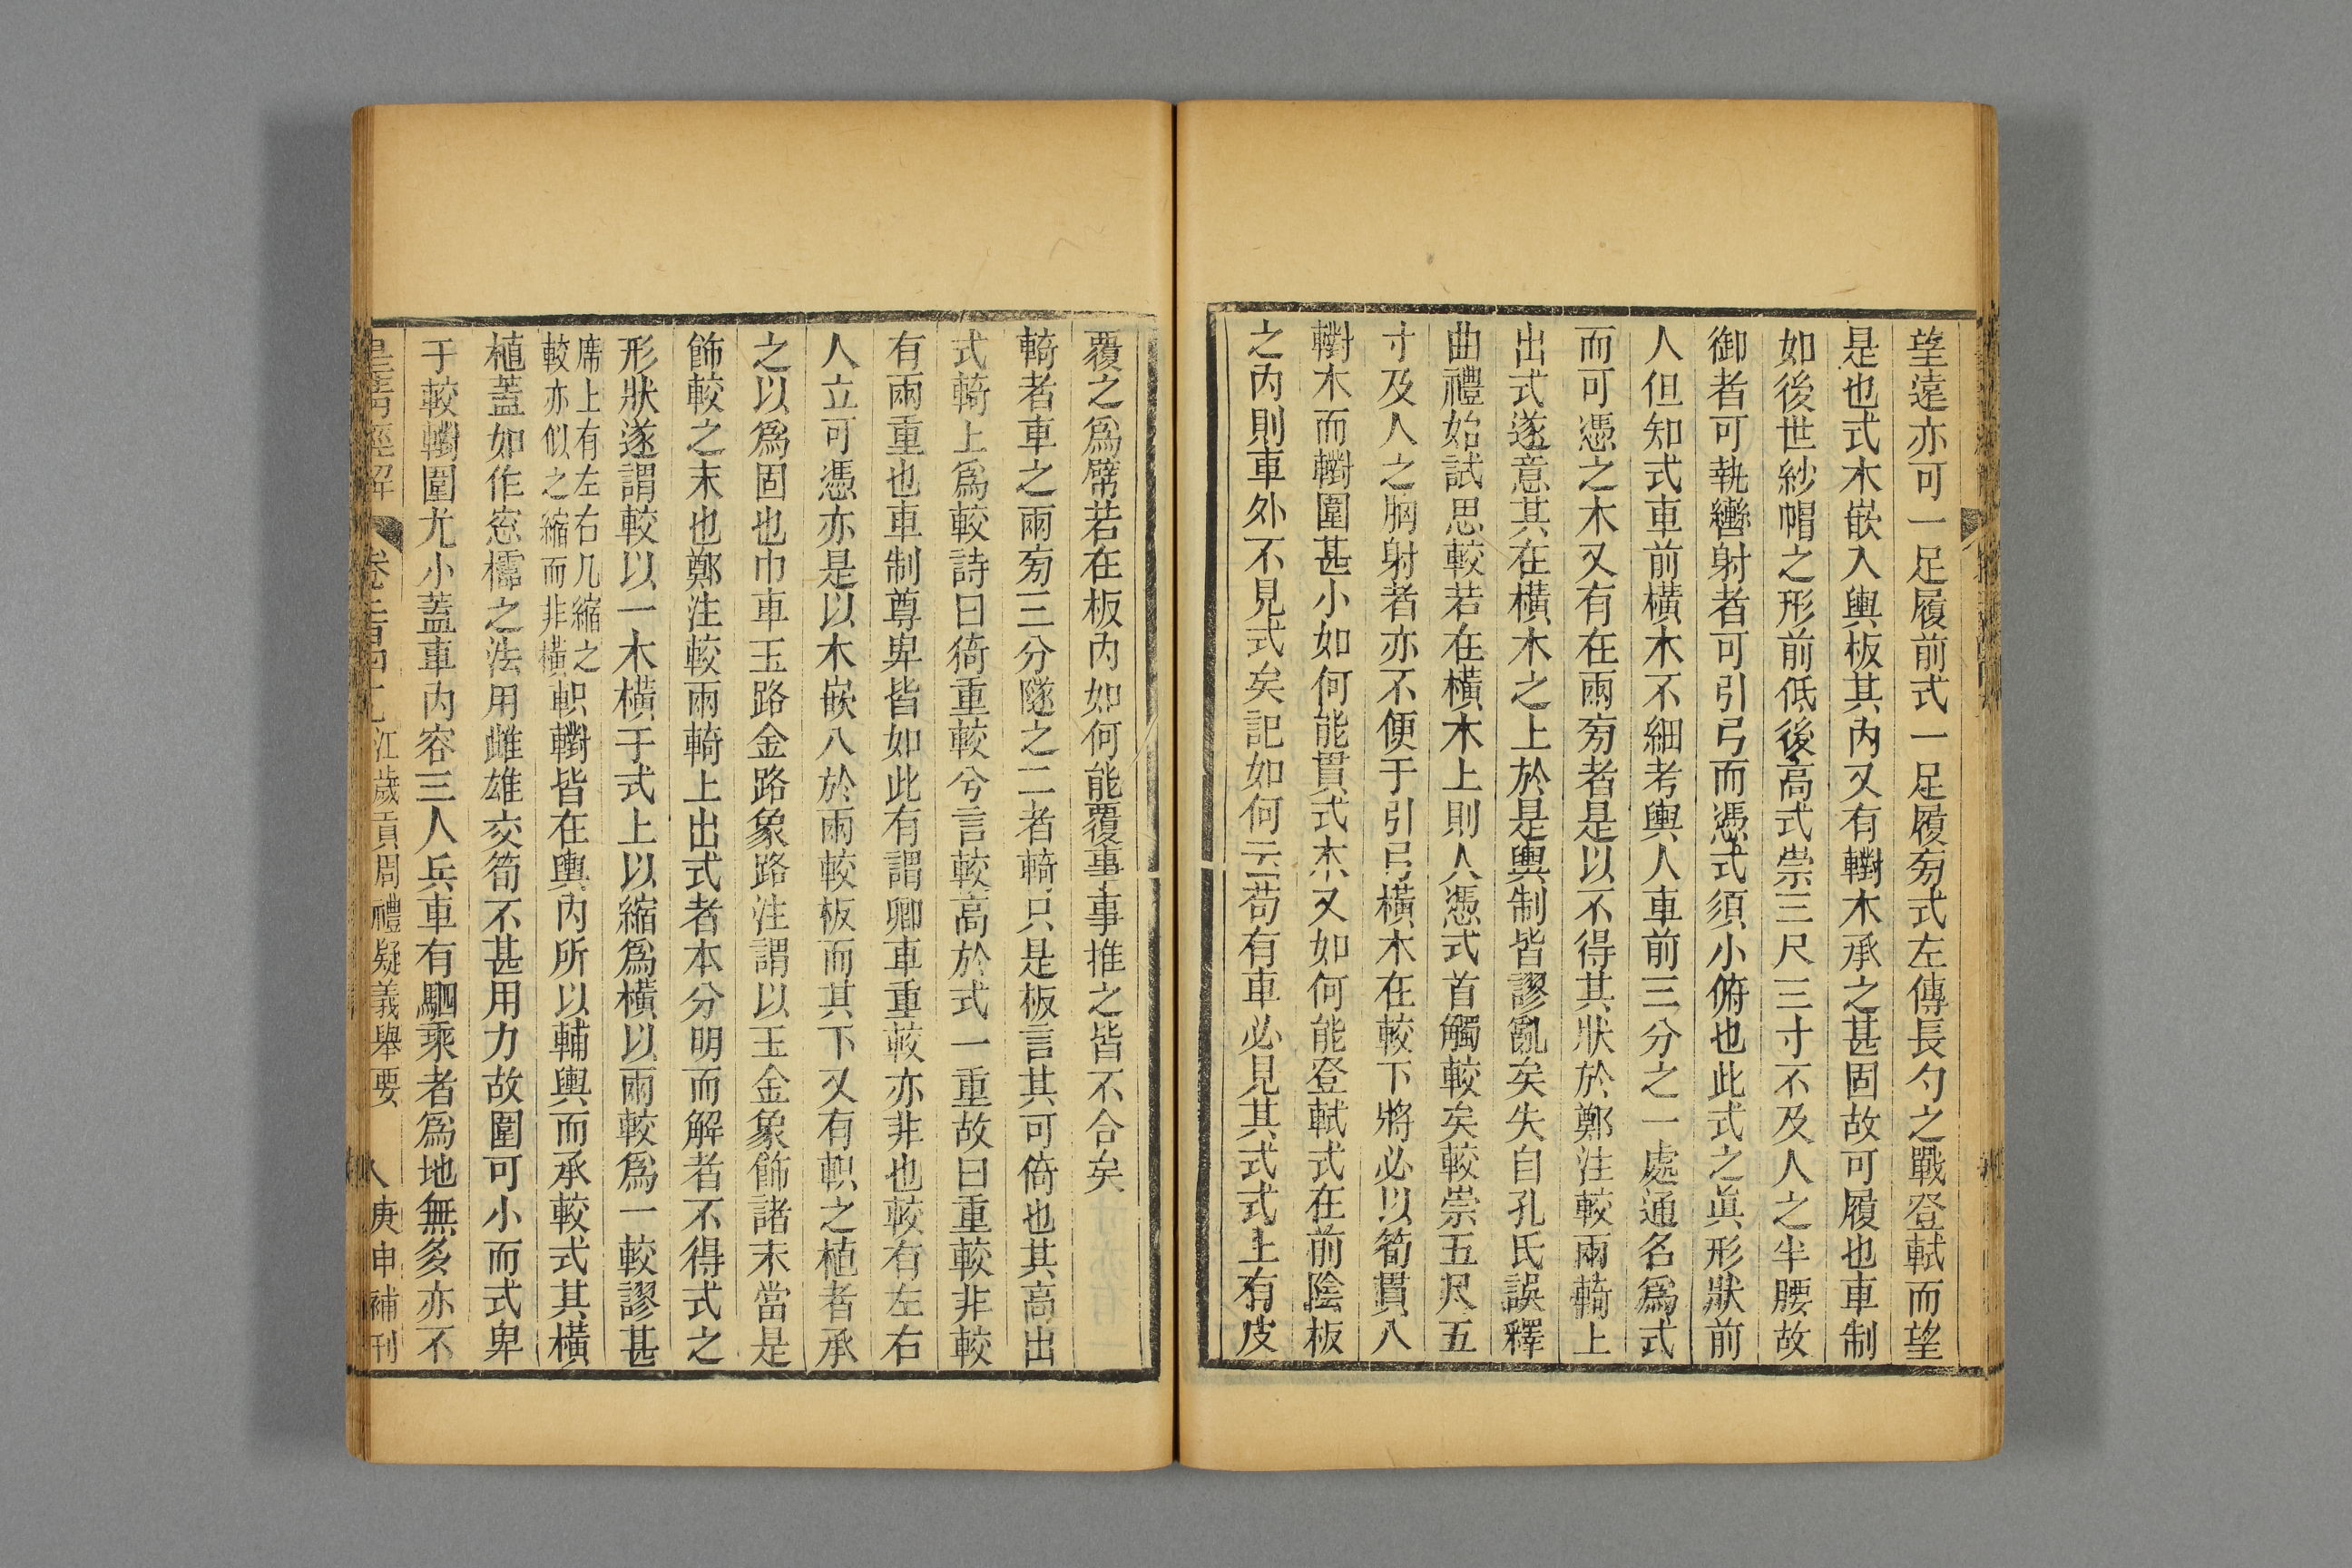 望遠亦可一足履前式一足履旁式左傳長勺之戰登軾而望
是也式木嵌入輿板其內又有轛木承之甚固故可履也車制
如後世紗帽之形前低後高式崇三尺三寸不及人之半腰故
御者可執轡射者可引弓而憑式須小俯也此式之眞形狀前
人但知式車前橫木不細考輿人車前三分之一處通名爲式
而可憑之木又有在兩旁者是以不得其狀於鄭注較兩輢上
出式遂意其在橫木之上於是輿制皆謬亂矣失自孔氏誤釋
曲禮始試思較若在橫木上則人憑式首觸較矣較崇五尺五
寸及人之胸射者亦不便于引弓橫木在較下將必以筍貫八
轛木而轛圍甚小如何能貫式木又如何能登軾式在前陰板
之內則車外不見式矣記如何云苟有車必見其式式上有皮
覆之爲幦若在板內如何能覆事事推之皆不合矣
輢者車之兩旁三分隧之二者輢只是板言其可倚也其高出
式輢上爲較詩曰猗重較兮言較高於式一重故曰重較非較
有兩重也車制尊卑皆如此有謂卿車重較亦非也較有左右
人立可憑亦是以木嵌入於兩較板而其下又有軹之植者承
之以爲固也巾車玉路金路象路注謂以玉金象飾諸末當是
飾較之末也鄭注較兩輢上出式者本分明而解者不得式之
形狀遂謂較以一木橫于式上以縮爲橫以兩較爲一較謬甚
席上有左右几縮之
較亦似之縮而非橫
軹轛皆在輿內所以輔輿而承較式其橫
植蓋如作窓櫺之法用雌雄交筍不甚用力故圍可小而式卑
于較轛圍尤小蓋車內容三人兵車有駟乘者爲地無多亦不
皇淸經解 卷二百四十七 江歲貢周禮疑義舉要 八 庚申補刊